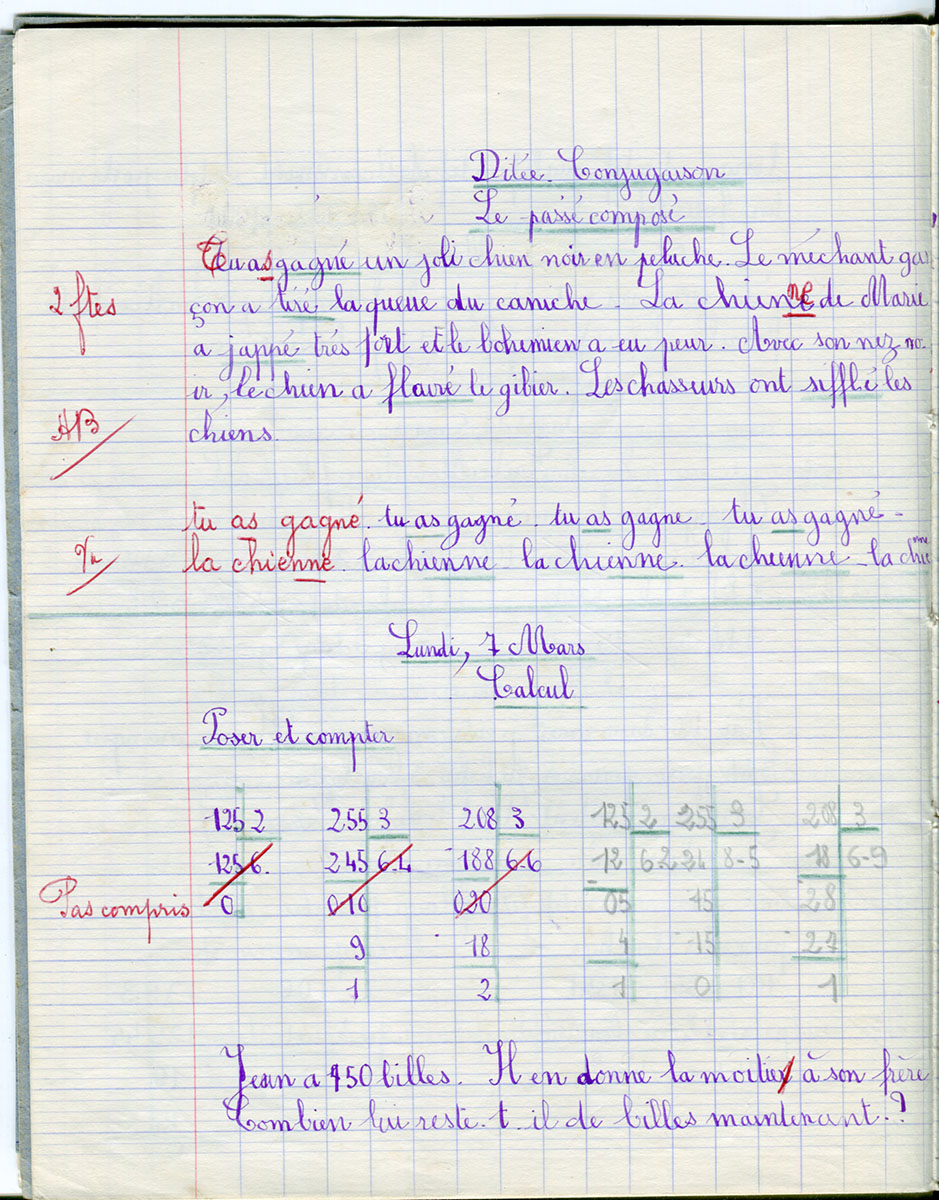 Ditée. Conjugaison
Le passé composé
Tu as gagné un joli chien noir en peluche. Le méchant gar
2 ftes
çon a tiré la queue du caniche. La chienne de Marie
a jappé très fort et le bohemien a eu peur. Avec son nez no
ir, le chien a flairé le gibier. Les chasseurs ont sifflé les
AB
chiens.
tu as gagné. tu as gagné. tu as gagne. tu as gagné.
Vu
la chienne. la chienne. la chienne. la chienne. la chienne
Lundi, 7 Mars
Calcul
Poser et compter
125 2 255 3 208 3 125 2 255 3 208 3
125 6. 245 6.4 188 6.6 12 62 24 8-5 18 6-9
Pas compris 0 010 020 05 15 28
9 18 4 15 27
1 2 1 0 1
Jean a 150 billes. Il en donne la moitié à son frère
Combien lui reste. t. il de billes maintenant.?